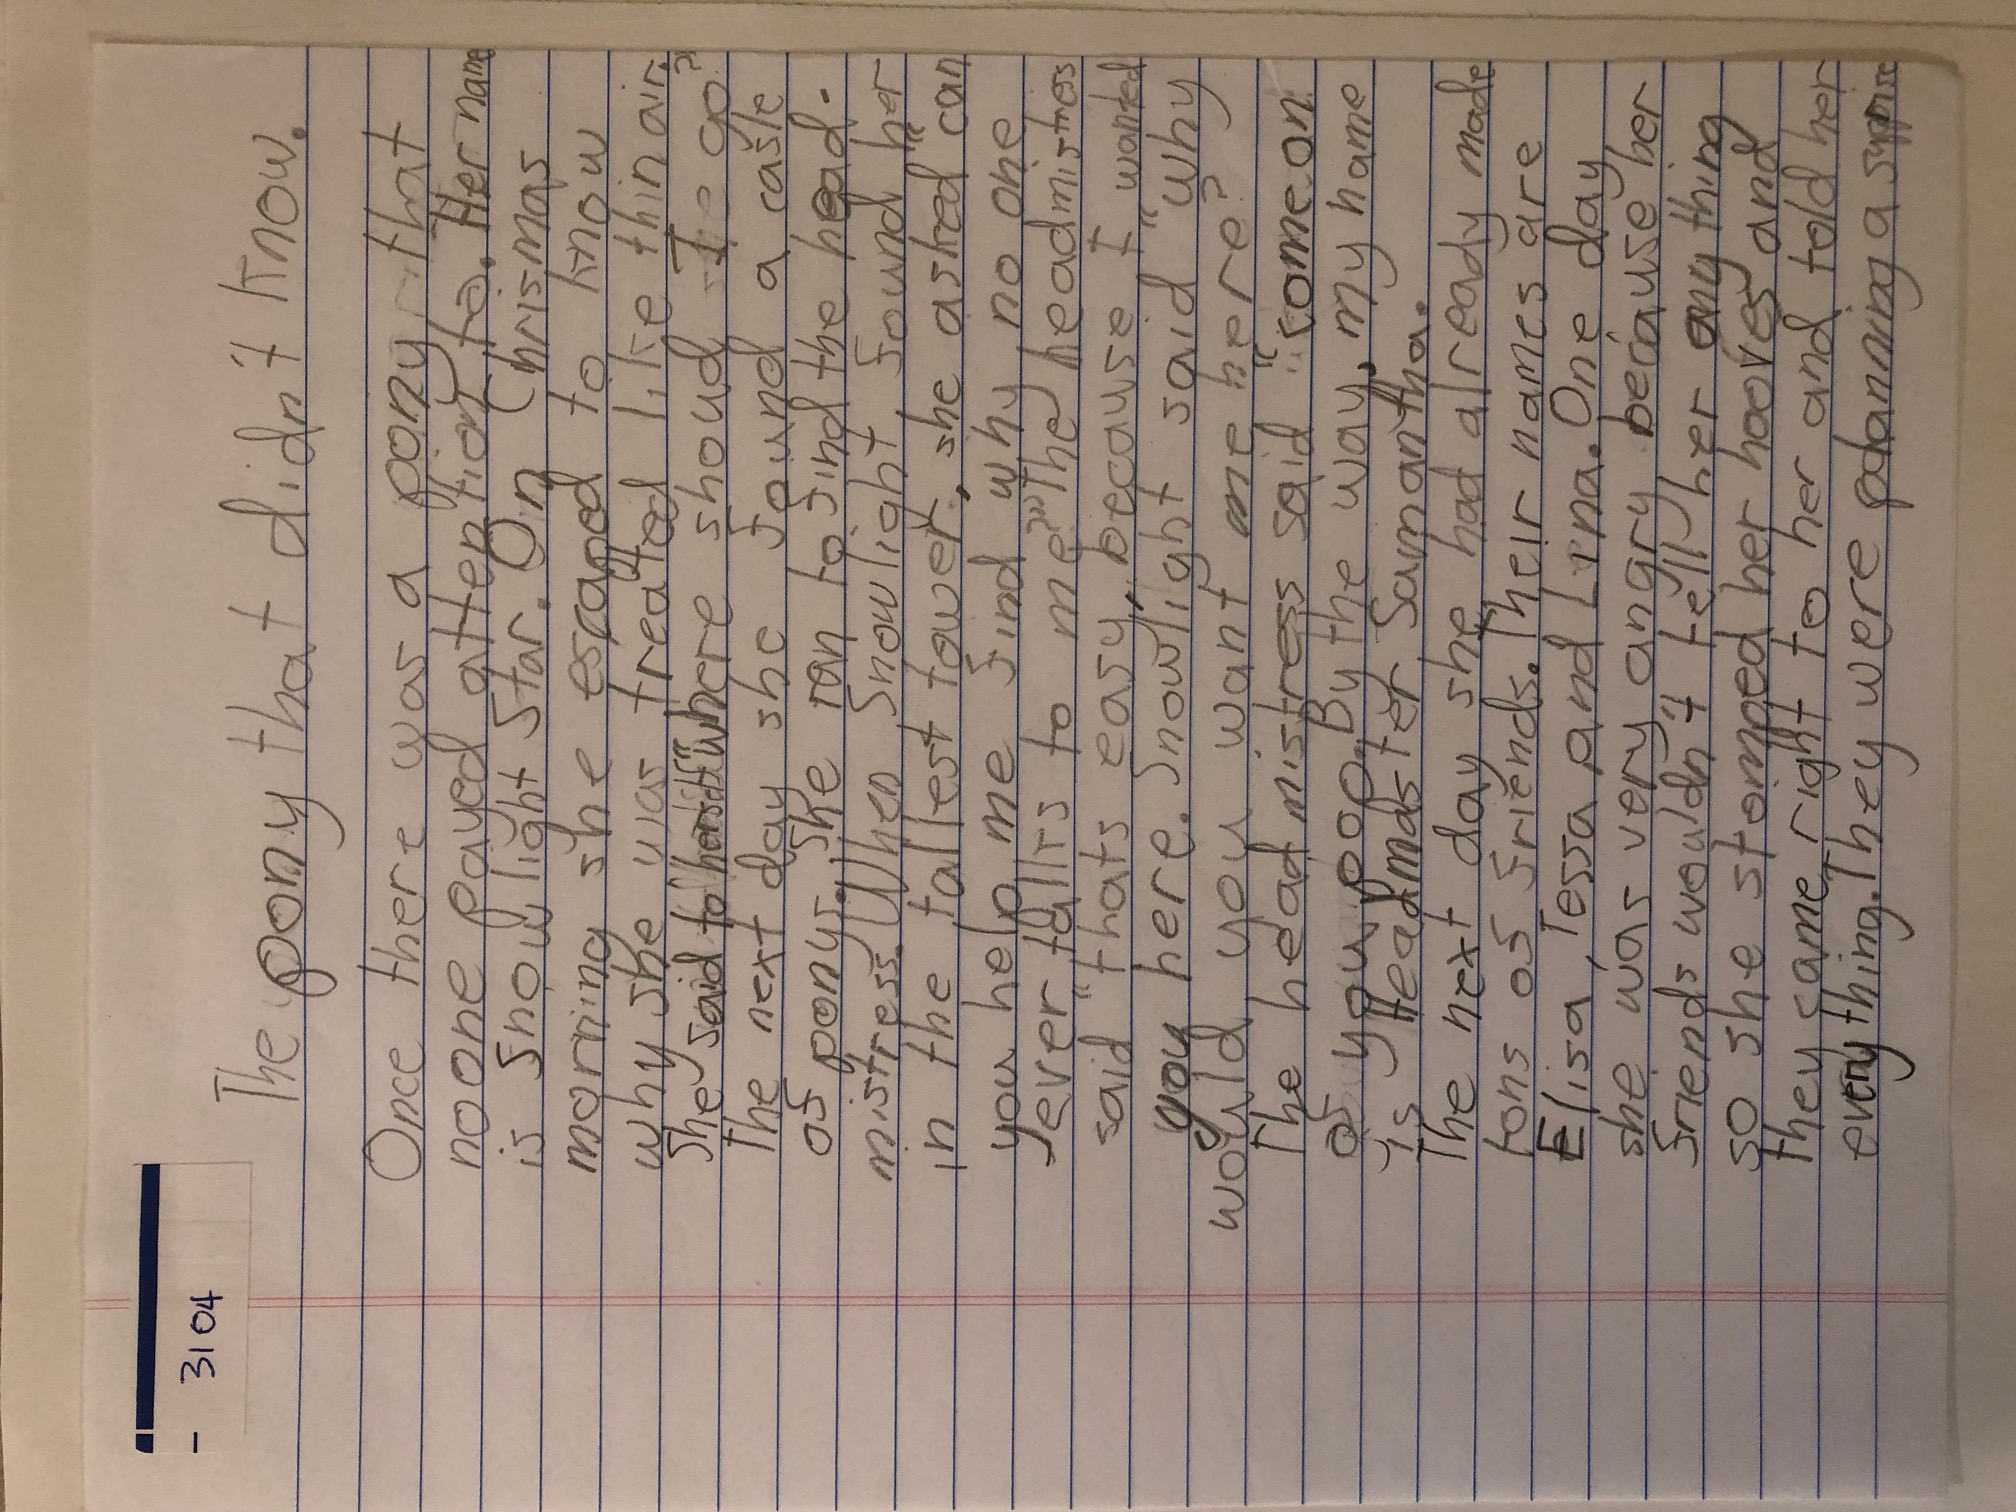 - 3104
The pony that didn't know.
Once there was a pony that
noone payed attention to. Her name
is Snowlight Star. On Chrismas
morning she escaped to know
why she was treated like thin air.
She said to herself "where shoud I go?"
The next day she found a casle
of ponys. She ran to find the head-
mistress. When Snowlight found her
in the tallest tower, she asked "can
you help me find why no one
ever talks to me?" The headmistress
said "thats easy, because I wanted
you here. Snowlight said "why
would you want me here?
The headmistress said "come on
of you pop. By the way, my name
is Headmaster Samantha.
The next day she had already made
tons of friends. Their names are
Elisa, Tessa and Lina. One day
she was very angry because her
friends wouldn't tell her anything
so she stomped her hooves and
they came right to her and told her
everything. They were planning a